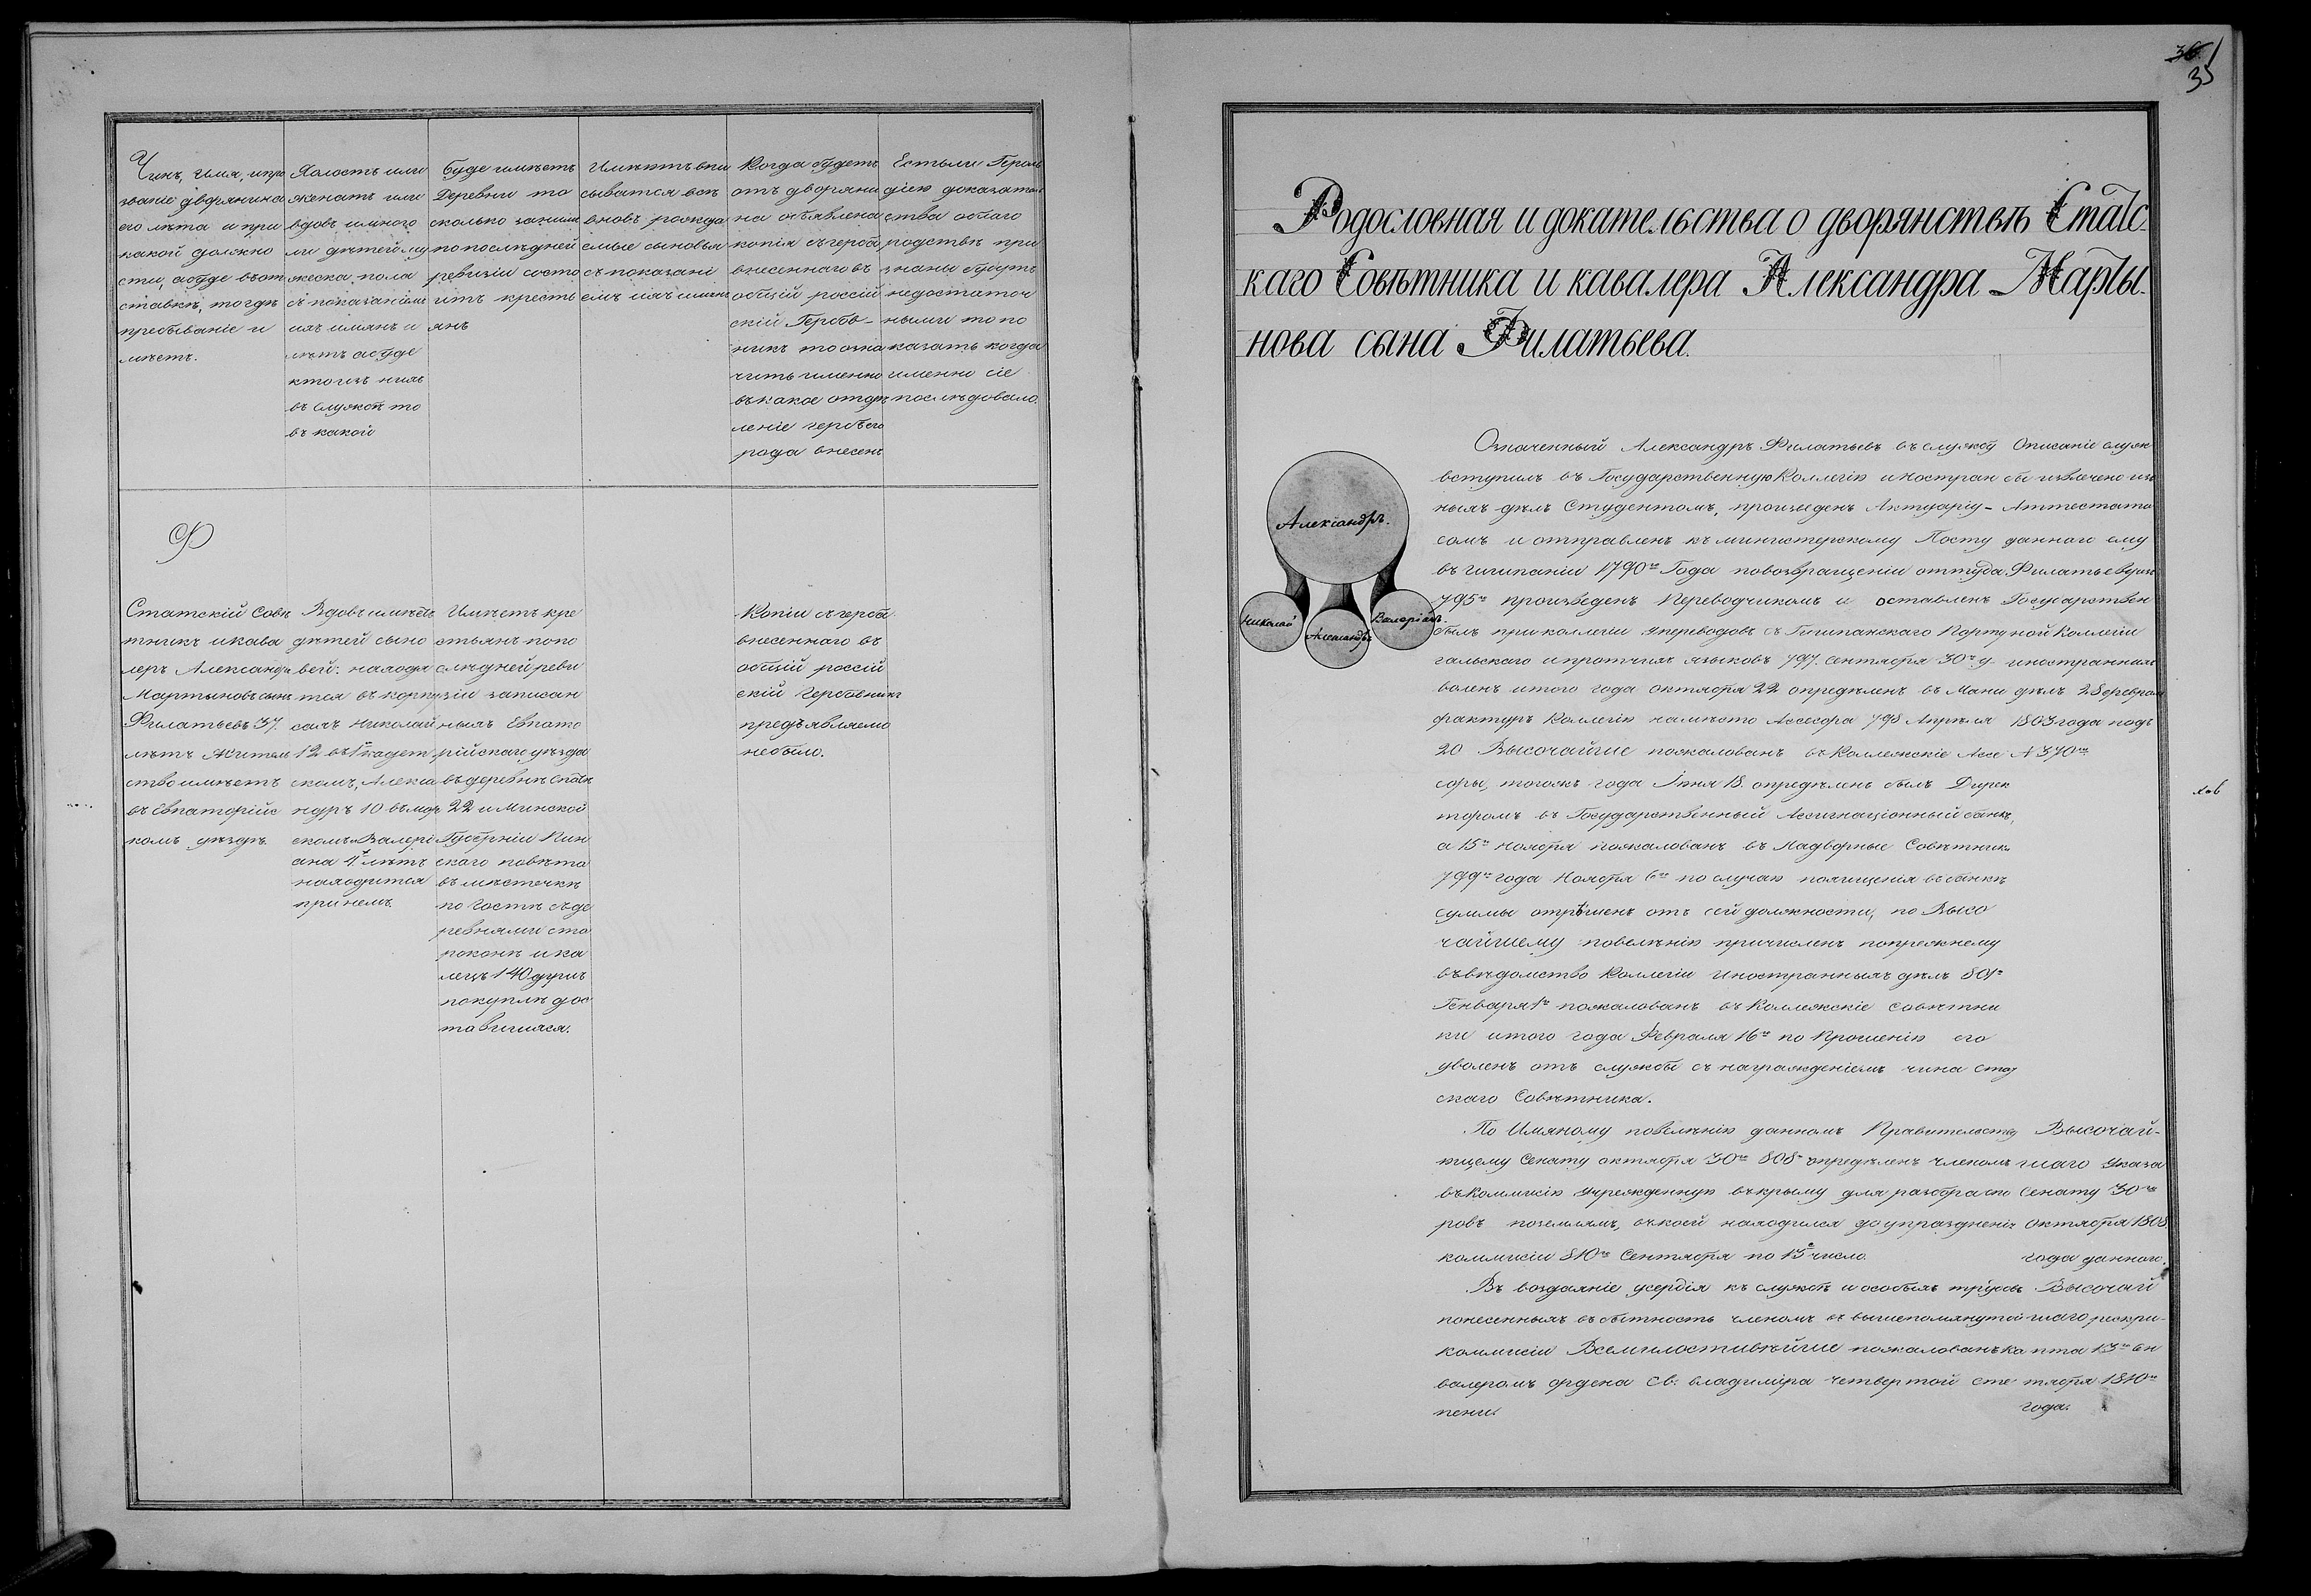 36
35
Чинъ, имя, и про
званіе дворянина
его лѣта и при
какой должно
сти, абуде въот
ставкѣ, то гдѣ
пребываніе и
мѣетъ.
Холостъ или
женатъ или
вдовъ имного
ли дѣтей му
жеска пола
съ показаніемъ
ихъ имянъ и
лѣтъ абуде
ктоизъ нихъ
въ службѣ то
въ какой
Буде имѣетъ
Деревни то
сколько заним
попослѣдней
ревизіи состо
итъ кресть
янъ
Имѣютъ впи
сыватся всѣ
вновь рожда
емые сыновья
съ показані
емъ ихъ имянъ
Когда будетъ
отъ дворяни
на объявлена
копія съ герба
внесеннаго въ
общій россій
скій Гербов-
никъ то озна
чить именно
въ какое отдѣ
леніе гербъ его
рода внесенъ
Естьли Героль
діею доказатель
ства общаго
родствѣ при
знаны будутъ
недостаточ
ными то по
казать когда
именно сіе
послѣдовало.
Ф
Статскій Совѣ
тникъ и кава
леръ Александръ
Мартыновъ сынъ
Филатьевъ 37.
лѣтъ Жительс
ство имѣетъ
въ Евпаторійс
комъ уѣздѣ
Вдовъ имѣетъ
дѣтей сыно
вей: находя
тся въ корпу
сахъ Николай
12 въ 1м кадет
скомъ, Алекса
ндръ 10 въ мор
скомъ, Валері
ана 4 лѣтъ
находится
при немъ.
Имѣетъ кре
стьянъ по по
слѣдней реви
зіи записан
ныхъ Евпато
рійскаго уѣзда
въ деревнѣ
22 и Минской
Губерніи Пин
скаго повѣта
въ мѣстечкѣ
по гостѣ съ де
ревнями сто
рококъ и ка
лецъ 140 душъ
покуплѣ дос
тавшихся.
Копіи съ герба
внесеннаго въ
общій россій
скій Гербовникъ
предъявляемо
небыло.
Родословная и докательства о дворянствѣ Статс-
каго Совѣтника и кавалера Александра Марты-
нова сына Филатьева.
Александръ.
Николай
Александръ
Валеріанъ.
Означенный Александръ Филатьевъ въ службу
вступилъ въ Государственную Коллегію иностран
ныхъ дѣлъ Студентомъ, произведенъ Актуаріу-
сомъ и отправленъ къ министерскому Посту
въ Гишпаніи 1790го Года повозвращеніи оттуда
795го произведенъ Переводчикомъ и оставленъ
былъ при коллегіи упереводовъ съ Гишпанскаго Порту
гальскаго и протчихъ языковъ 797. Сентября 30го у-
воленъ и того года октября 22 опредѣленъ въ Ману
фактуръ Коллегію на мѣсто Ассесора 798 Апрѣля
20 Высочайше пожалованъ въ Коллежскіе Ассе
соры, тогожъ года Іюня 18. опредѣленъ былъ Дирек
торомъ въ Государственный Ассигнаціонный банкъ,
а 15го ноября пожалованъ въ Надворные Совѣтники
799го года Ноября 6го по случаю похищенія въ банкѣ
суммы отрѣшенъ отъ сей должности, по Высо
чайшему повелѣнію причисленъ попрежнему
въ вѣдомство Коллегіи Иностранныхъ дѣлъ 801го
Генваря 1го пожалованъ въ Коллежскіе Совѣтни
ки и того года Февраля 16го по Прошенію его
уволенъ отъ службы съ награжденіемъ чина стат
скаго Совѣтника.
Описаніе служ
бы извлечено изъ
Аттестата
даннаго ему
Филатьеву изъ
Государствен
ной Коллегіи
иностранныхъ
дѣлъ 28 февраля
1803 года подъ
№ 370мъ
По Имяному повелѣнію данномъ Правительству
ющему Сенату октября 30го 808го опредѣленъ членомъ
въ Коммисію Учрежденную въ крыму для разбора спо
ровъ поземлямъ, въ коей находился до упраздненія
коммисіи 810го Сентября по 15е число.
Высочай-
шаго Указа
Сенату 30го
октября 1808
года даннаго.
Въ воздаяніе усердія къ службѣ и особыхъ трудовъ
понесенныхъ въ бытность членомъ въ вышепомянутой
коммисіи Всемилостивѣйше пожалованъ ка
валеромъ ордена Св: владиміра четвертой сте
пени.
Высочай
шаго рескри-
пта 13го Сен
тября 1810го
года.